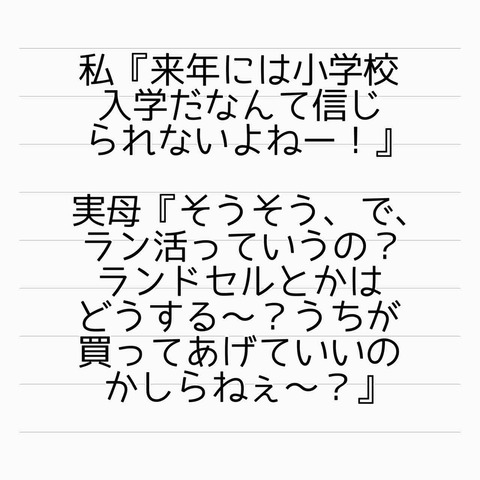 私『来年には小学校
入学だなんて信じ
られないよねー！』
実母『そうそう、で、
ラン活っていうの？
ランドセルとかは
どうする〜？うちが
買ってあげていいの
かしらねぇ〜？』